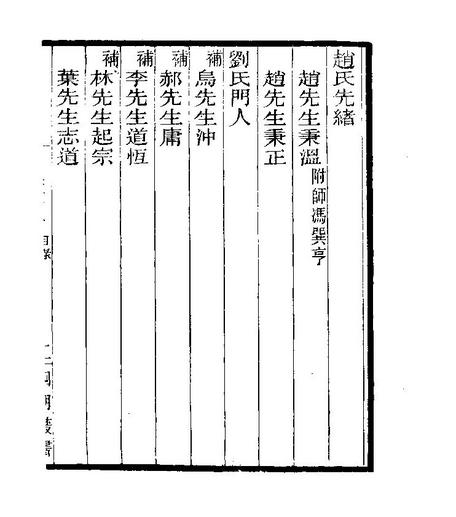 趙氏先緒
趙先生秉溫附師馮巽亨
趙先生秉正
劉氏門人
補烏先生沖
補郝先生庸
補李先生道恆
補林先生起宗
葉先生志道